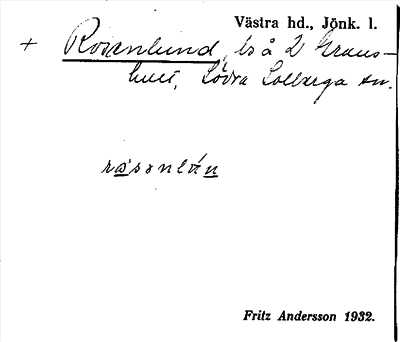 Västra hd., Jönk. l.
+ Rosenlund, ls å 2 Kraus-
huet, Södra Solberga sn.
rås onlún
Fritz Andersson 1932.